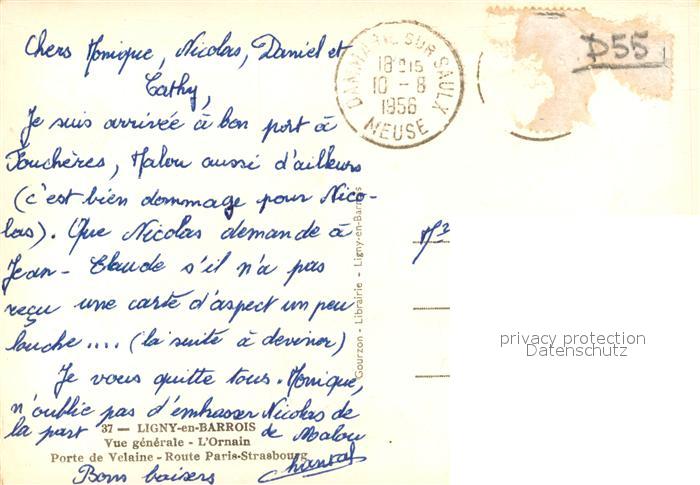 Chers Monique, Nicolas, Daniel et
Cathy,
Je suis arrivée à bon port à
Fouchères, Malou aussi d'ailleurs
(c'est bien dommage pour Nico-
las). Que Nicolas demande à
Jean-Claude s'il n'a pas
reçu une carte d'aspect un peu
louche.... (la suite à deviner)
Je vous quitte tous. Monique,
n'oublie pas d'embrasser Nicolas de
la part de Malou
Bons baisers Chantal
37 — LIGNY-en-BARROIS
Vue générale - L'Ornain
Porte de Velaine - Route Paris-Strasbourg
Gourzon - Librairie - Ligny-en-Barrois
DAMMARIE SUR SAULX
18 H 15
10 - 8
1956
MEUSE
D55
privacy protection
Datenschutz